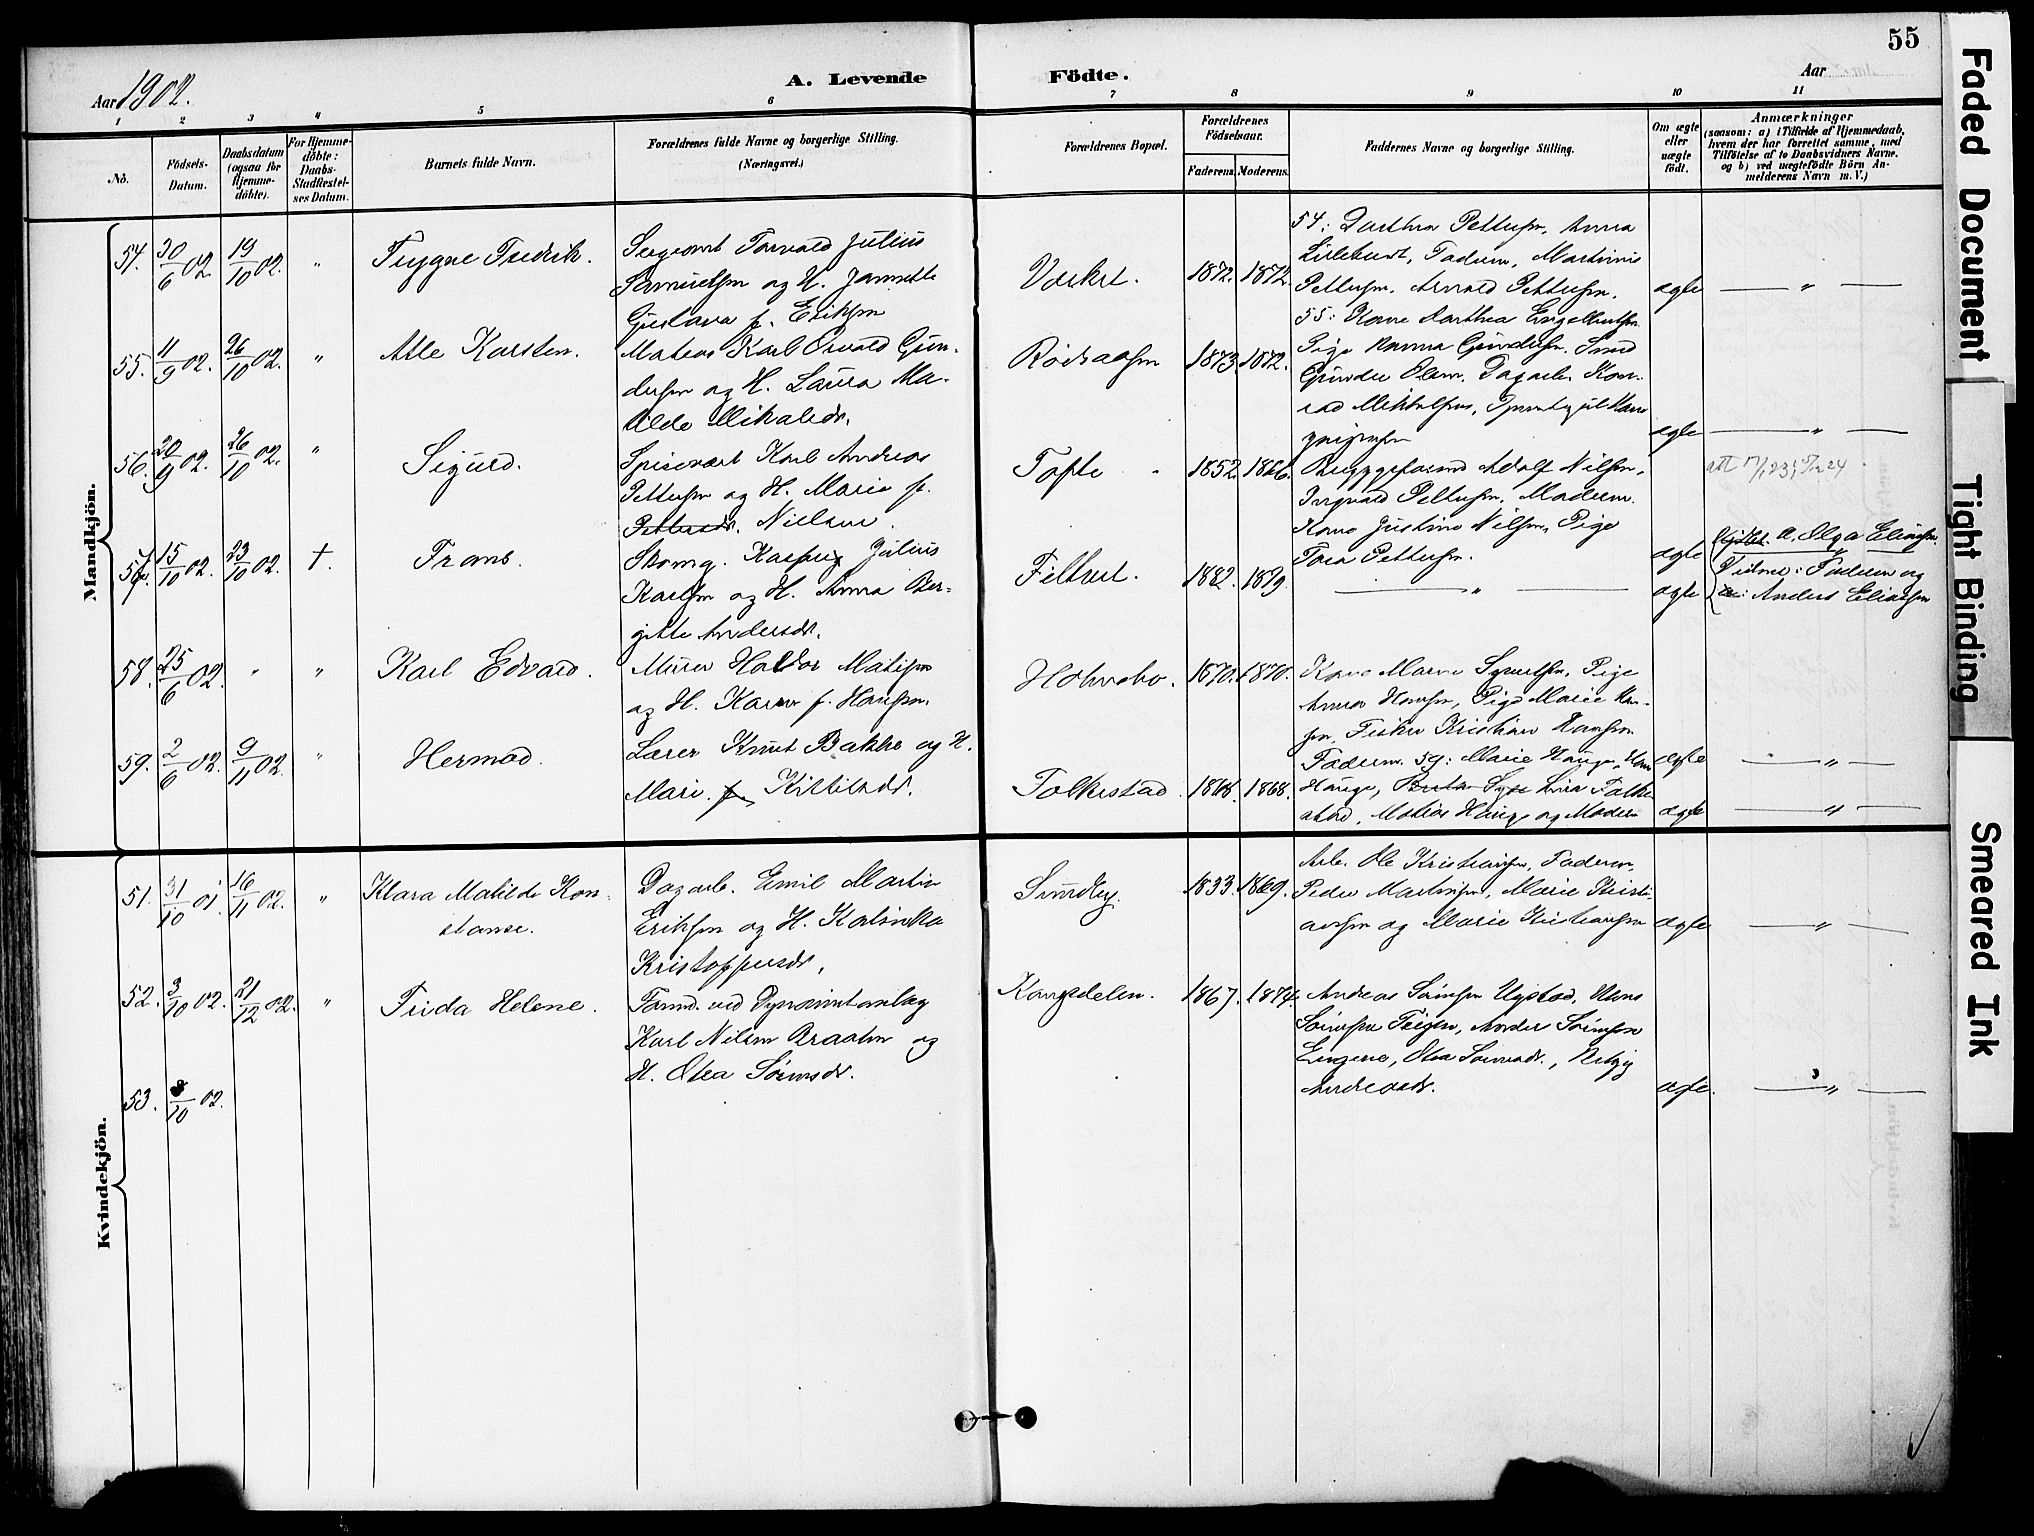 55
Aar 1902.
A. Levende Födte.
Aar
1 2 3 4 5 6 7 8 9 10 11
No.
Födsels-
Datum.
Daabsdatum
(ogsaa for
Hjemme-
döbte).
For Hjemme-
döbte:
Daabs-
Stadfæstel-
ses Datum.
Barnets fulde Navn.
Forældrenes fulde Navne og borgerlige Stilling.
(Næringsvei.)
Forældrenes Bopæl.
Forældrenes
Födselsaar.
Faderens. Moderens.
Faddernes Navne og borgerlige Stilling.
Om ægte
eller
uægte
födt.
Anmærkninger
(saasom: a) i Tilfælde af Hjemmedaab,
hvem der har forrettet samme, med
Tilföielse af to Daabsvidners Navne.
og b) ved uægtefödte Börn An-
melderens Navn m. V.)
Mandkjön.
54. 30/6 02. 19/10 02. " Trygve Fredrik.
Sergeant Torvald Julius
Samuelsen og H. Jannette
Gustava f. Eriksen
Værket. 1872. 1872.
54: Dorthea Pettersen, Anna
Lillebudt, Faderen, Martinius
Pettersen, Arvald Pettersen.
ægte — " —
55. 11/9 02. 26/10 02. " Atle Karsten.
Matros Karl Osvald Gun-
dersen og H. Laura Ma-
tilde Mikalsdr.
Rödsaasen 1873. 1872.
55: Kone Marthea Engelbretsen
Pige Hanna Gundersen, Smed
Gunder Olsen, Dagarb. Kon-
rad Mikkelsen,
ægte — " —
56. 20/9 02. 26/10 02. " Sigurd.
Spisevært Karl Andreas
Pettersen og H. Marie f.
Pettersdr. Nielsen.
Tofte 1852. 1866.
Bryggeformand Adolf Nilsen,
Ingvald Pettersen, Moderen.
Kone Justine Nilsen, Pige
Tora Pettersen.
ægte
att 17/1 23, 5/12 24
57. 15/10 02. 23/10 02. †. Frans.
Skomg. Kasper Julius
Karlsen og H. Anna Ber-
gitte Andersdr.
Filtvet. 1882. 1879.
— " —
ægte
A. Olga Eliassen.
Vidner: Faderen og
Anders Eliassen
58. 25/6 02. " " Karl Edvard.
Murer Haldor Matisen
og H. Karen f. Hansen.
Holmsbo. 1870. 1870.
Kone Marie Syvertsen, Pige
Anna Hansen, Pige Marie Han-
sen, Fisker Kristian Hansen
Faderen.
ægte — " —
59. 2/6 02. 9/11 02. " Hermod.
Lærer Knut Bakke og H.
Mari f. Kittilsdr.
Folkestad. 1868. 1868.
59: Marie Hauge, Hans
Hauge, Lina Folke-
stad, Matias Hauge og Moderen
ægte — " —
Kvindekjön.
51. 31/10 01. 16/11 02. " Klara Matilde Kon-
stanse.
Dagarb. Emil Martin
Eriksen og H. Katinka
Kristoffersdr.
Sundby. 1833. 1869.
Arb. Ole Kristiansen, Faderen,
Peder Martinsen, Marie Kristi-
ansen og Marie Kristiansen
ægte — " —
52. 3/10 02. 21/12 02. " Frida Helene.
Formd. ved Dynamitanlæg
Karl Nilsen Braaten og
H. Olea Sörensdr.
Kongsdelen. 1867. 1874.
Andreas Sörensen Ugstad, Hans
Sörensen Teigen, Anders Sörensen
Engene, Olea Sörensdr.,
Andreasdr.
ægte. — " —
53. 8/10 02.
Faded Document
Tight Binding
Smeared Ink